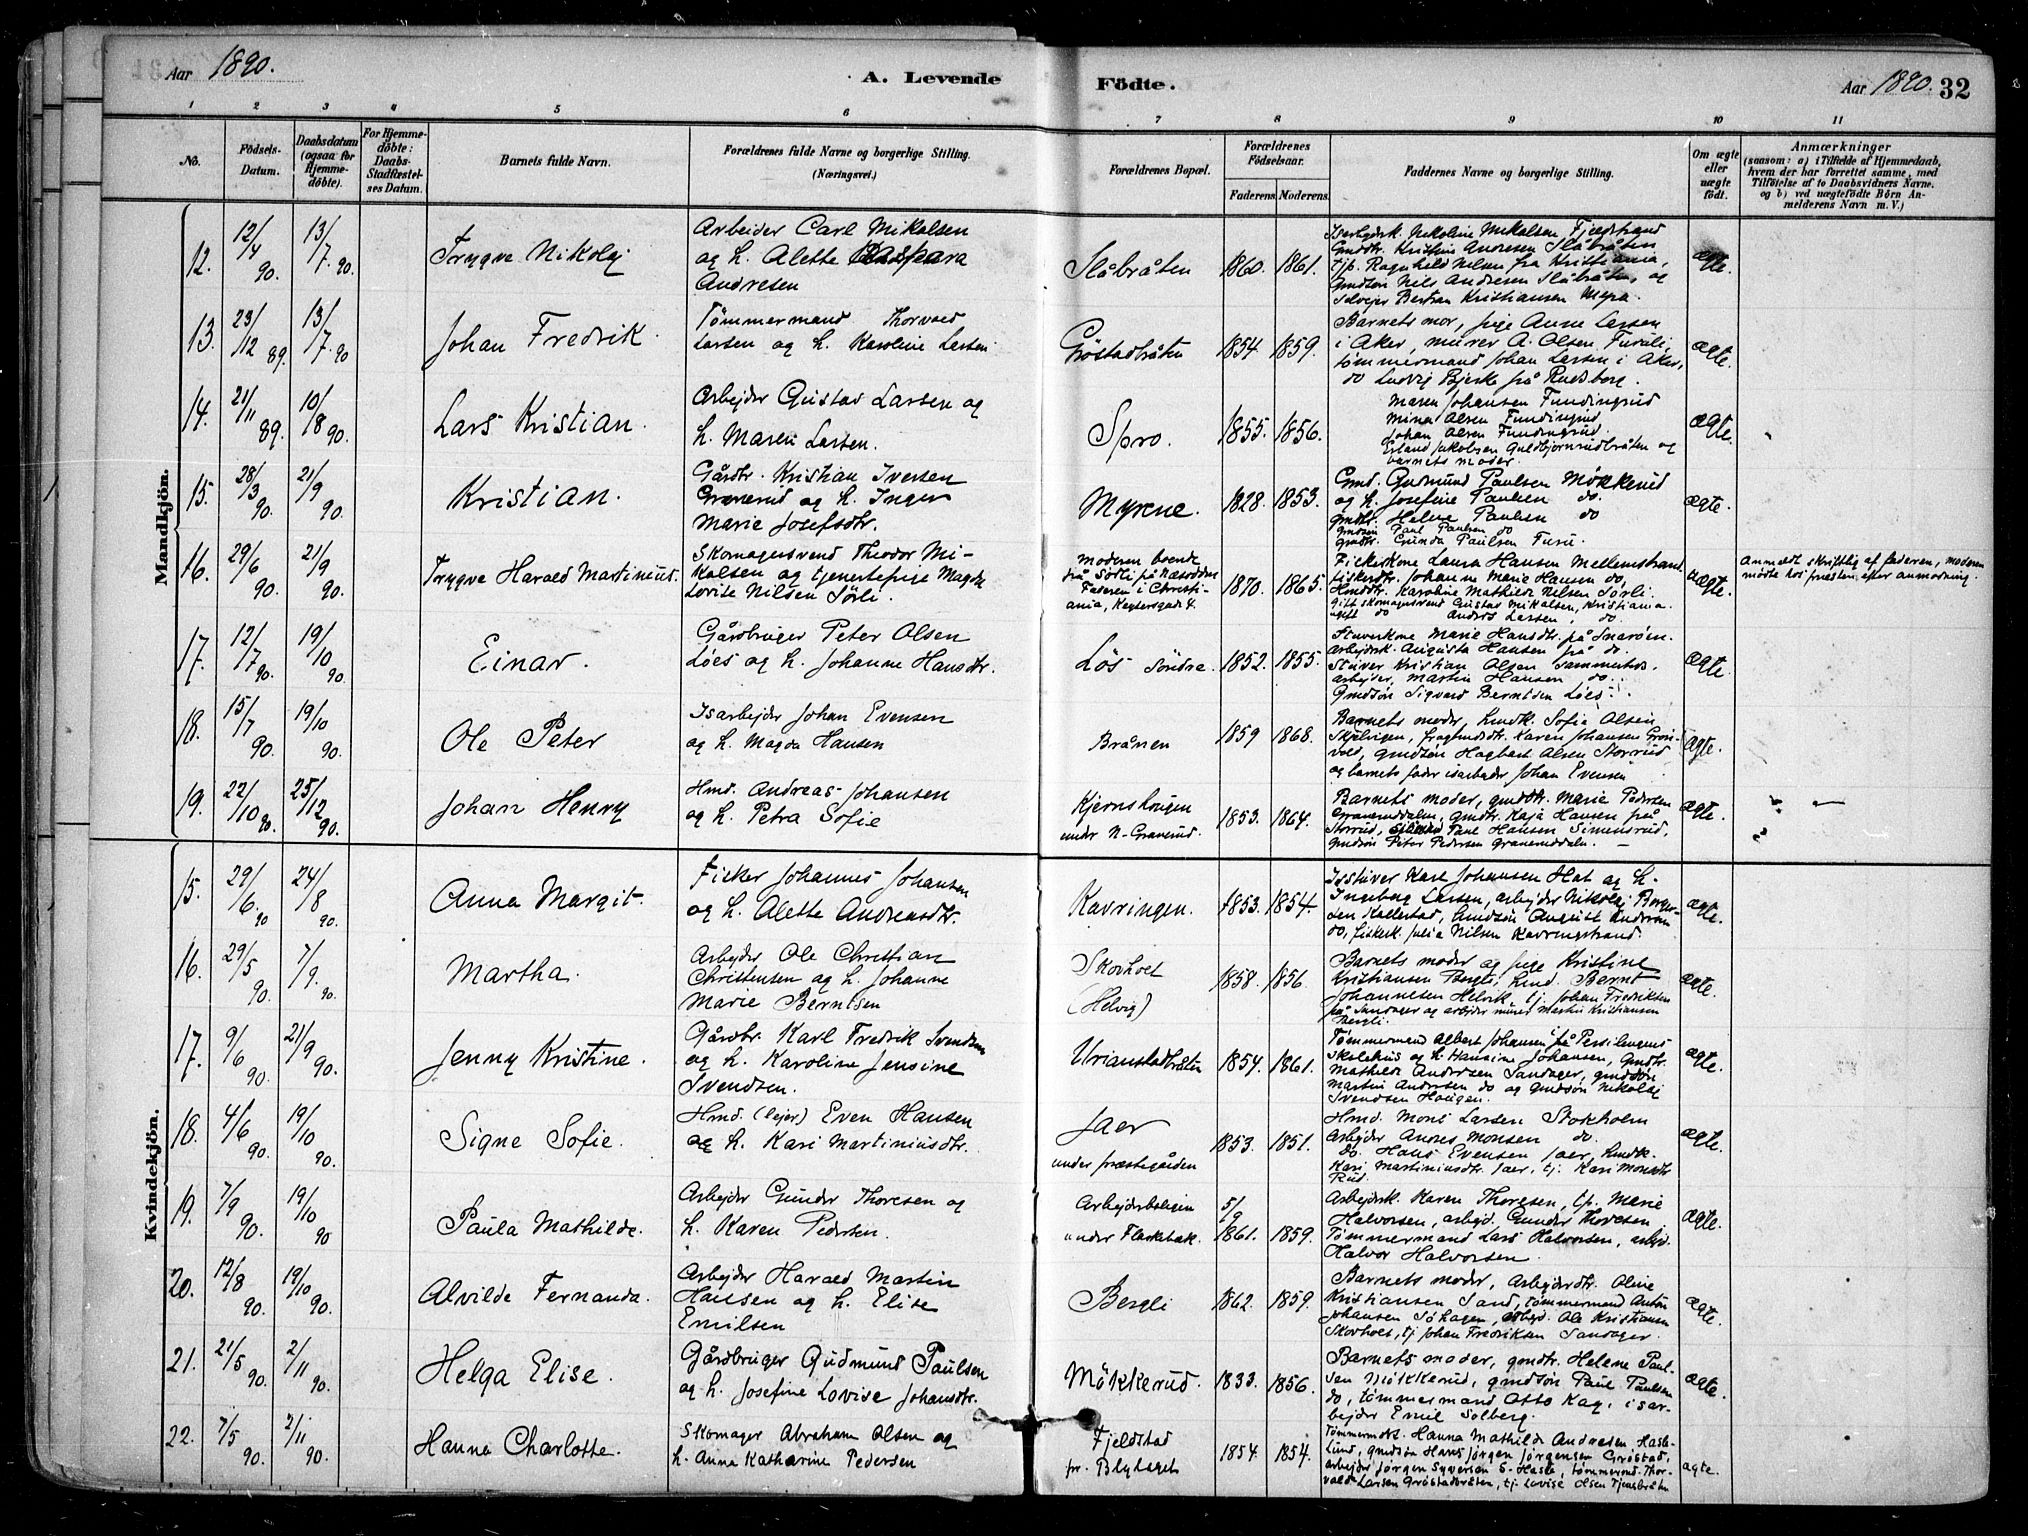 Aar 1890.
A. Levende
Födte.
Aar 1890. 32
1 2 3 4 5 6 7 8 9 10 11
No.
Födsels-Datum.
Daabsdatum (ogsaa for Hjemmedöbte).
For Hjemmedöbte: Daabs-Stadfæstelses Datum.
Barnets fulde Navn.
Forældrenes fulde Navne og borgerlige Stilling. (Næringsvei.)
Forældrenes Bopæl.
Forældrenes Födselsaar.
Faderens. Moderens.
Faddernes Navne og borgerlige Stilling.
Om ægte eller uægte födt.
Anmærkninger
(saasom: a) i Tilfælde af Hjemmedaab, hvem der har forrettet samme, med Tilföielse af to Daabsvidners Navne. og b) ved uægtefödte Börn Anmelderens Navn m. V.)
Mandkjön.
12. 12/4 90. 13/7 90. Trygve Nikolaj
Arbeider Carl Mikalsen
og h. Alette Kaspara
Andresen
Slåbråten 1860. 1861.
Isarbejdsk. Nikoline Mikalsen Fjældstrand
Gmdtr. Kristine Andresen Slåbråten
tjp. Ragnhild Nilsen fra Kristiania,
Gmdsøn Nils Andresen Slåbråten, og
Selvejer Bertran Kristiansen Myra.
ægte.
13. 23/12 89. 13/7 90 Johan Fredrik
Tömmermand Thorvald
Larsen og h. Karoline Larsen
Gröstadbråten 1854. 1859.
Barnets mor, pige Anne Larsen
i Aker, murer A. Olsen Furuli,
tømmermand Johan Larsen i Aker,
do Ludvig Bjerke på Rudsborg.
ægte.
14. 21/11 89. 10/8 90. Lars Kristian.
Arbejder Gustav Larsen og
h. Maren Larsen.
Spro. 1855. 1856.
Maren Johansen Fundingsrud
Mina Olsen Fundingsrud
Johan Olsen Fundingsrud.
Erland Jakobsen Guldbjørnrudbråten og
barnets moder.
ægte.
15. 28/3 90. 21/9 90. Kristian.
Gårdbr. Kristian Iversen
Granerud og h. Inger
Marie Josefsdtr.
Myrene. 1828. 1853.
Gmd. Gudmund Paulsen Mökkerud
og h. Josefine Paulsen do.
gmdtr. Helene Paulsen do
gmdsøn Paul Paulsen do
gmdtr. Gunda Paulsen Furu.
ægte.
16. 29/6 90. 21/9 90. Trygve Harald Martinius.
Skomagersvend Theodor Mi-
kalsen og tjenestepige Magda
Lovise Nilsen Sörli.
Moderen boende
på Sörli på Næsodden
Faderen i Christi-
ania, Keysersgade 4.
1870. 1865.
Fiskerkone Laura Hansen Mellemstrand,
fiskerdtr. Johanne Marie Hansen do,
Hmdtr. Karoline Mathilde Nilsen Sörli.
Gift skomagersvend Gustav Mikalsen, Kristiania.
ugift do Anders Larsen, do.
uægte.
Anmeldt skriftlig af faderen, moderen
mødte hos præsten efter anmodning.
17. 12/7 90. 19/10 90. Einar.
Gårdbruger Peter Olsen
Löes og h. Johanne Hansdtr.
Lös söndre. 1852. 1855.
Stuverkone Marie Hansdtr. på Snarøen.
arbejdsk. Augusta Hansen på do.
Stuver Kristian Olsen sammesteds.
arbejder, Martin Hansen do.
Gmdsøn Sigvard Berntsen Löes.
ægte
18. 15/7 90. 19/10 90. Ole Peter
Isarbejder Johan Evensen
og h. Magda Hansen
Bråten 1859 1868.
Barnets moder, hmdk. Sofie Olsen
Karen Johansen Grön-
vold, gmdsøn Hagbart Olsen Storrud
og barnets fader isarbejder Johan Evensen
ægte.
19. 22/10 90. 25/12 90. Johan Henry
Hmd. Andreas Johansen
og h. Petra Sofie
Kjernshougen
under N. Graverud. 1853. 1864.
Barnets moder, gmdtr. Marie Pedersen
Graneruddalen, gmdtr. Kaja Hansen på
Storrud, Paul Hansen Simensrud,
gmdsøn Peter Pedersen Graneruddalen.
ægte.
Kvindekjön.
15. 29/6 90 24/8 90. Anna Margit.
Fisker Johannes Johansen
og h. Alette Andreasdtr.
Kavringen. 1853. 1854.
Isstuver Karl Johansen Hat og h.
Ingeborg Larsen, arbejder Nikolaj Berger-
sen Kallestad, hmdsøn August Andersen
do, fiskerk. Julia Nilsen Kavringstrand.
ægte.
16. 29/5 90. 7/9 90. Martha.
Arbejder Ole Christian
Christensen og h. Johanne
Marie Berntsen
Skovholt
(Helvig) 1858. 1856.
Barnets moder og pige Kristine
Kristiansen Bergli, hmd. Bernt
Johannesen Helvik, tj. Johan Fredriksen
på Sandager og arbejder murer Martin Kristiansen
Bergli.
ægte.
17. 9/6 90. 21/9 90. Jenny Kristine.
Gårdbr. Karl Fredrik Svendsen
og h. Karoline Jensine
Svendsen.
Urianstadbråten 1854. 1861.
Tømmermand Albert Johansen på Persilengens
Skolehus og h. Hansine Johansen, Gmdtr.
Mathilde Andersen Sandager, gmdsøn
Martin Andersen do og gmdsøn Nikolaj
Svendsen Hougen.
ægte.
18. 4/6 90. 19/10 90. Signe Sofie.
Hmd. (lejer) Even Hansen
og h. Kari Martiniusdtr.
Jaer
under præstegården 1853. 1851.
Hmd. Mons Larsen Stokholm
Arbejder Andres Monsen do.
do. Hans Evensen Jaer, hmdk.
Kari Martiniusdtr Jaer, tj. Kari Monsdtr
Rud.
ægte.
19. 7/9 90. 19/10 90 Paula Mathilde.
Arbejder Gunder Thoresen og
h. Karen Pedersen.
Arbejderboligen
under Flaskebæk. 5/9 1861. 1859.
Arbejdsk. Karen Thoresen, tp. Marie
Halvorsen, arbejd. Gunder Thoresen
Tømmermand Lars Halvorsen, arbejd.
Halvor Halvorsen.
ægte.
20. 12/8 90. 19/10 90. Alvilde Fernanda.
Arbejder Harald Martin
Hansen og h. Elise
Emilsen
Bergli 1862. 1859.
Barnets moder, Arbejderdtr. Oline
Kristiansen Sand, tømmermand Anton
Johansen Söhagen, arbejd. Ole Kristiansen
Skovholt, tj Johan Fredriksen Sandager.
ægte.
21. 21/5 90. 2/11 90. Helga Elise.
Gårdbruger Gudmund Paulsen
og h. Josefine Lovise Johansdtr.
Mökkerud. 1833. 1856.
Barnets moder, gmdtr. Helene Paul-
sen Mökkerud, gmdsøn Paul Paulsen
do, tømmermand Otto Kag, isar-
bejder Emil Solberg.
ægte.
22. 7/5 90. 2/11 90. Hanna Charlotte.
Skomager Abraham Olsen og
h. Anna Katharine Pedersen
Fjeldstad
pr. Blylaget 1854. 1854.
Tømmermdk. Hanna Mathilde Andresen, Hasle-
lund, gmdsøn Hans Jørgen Jørgensen Gröstad,
arbejder Jørgen Syversen S. Hasle, tømmermd. Thor-
vald Larsen Gröstadbråten, tj. Lovise Olsen Tjernsbråten
ægte.